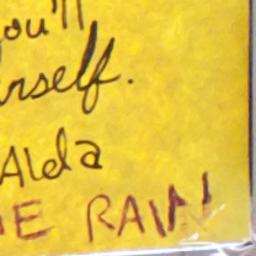 ou'll
rself.
Alda
E RAIN